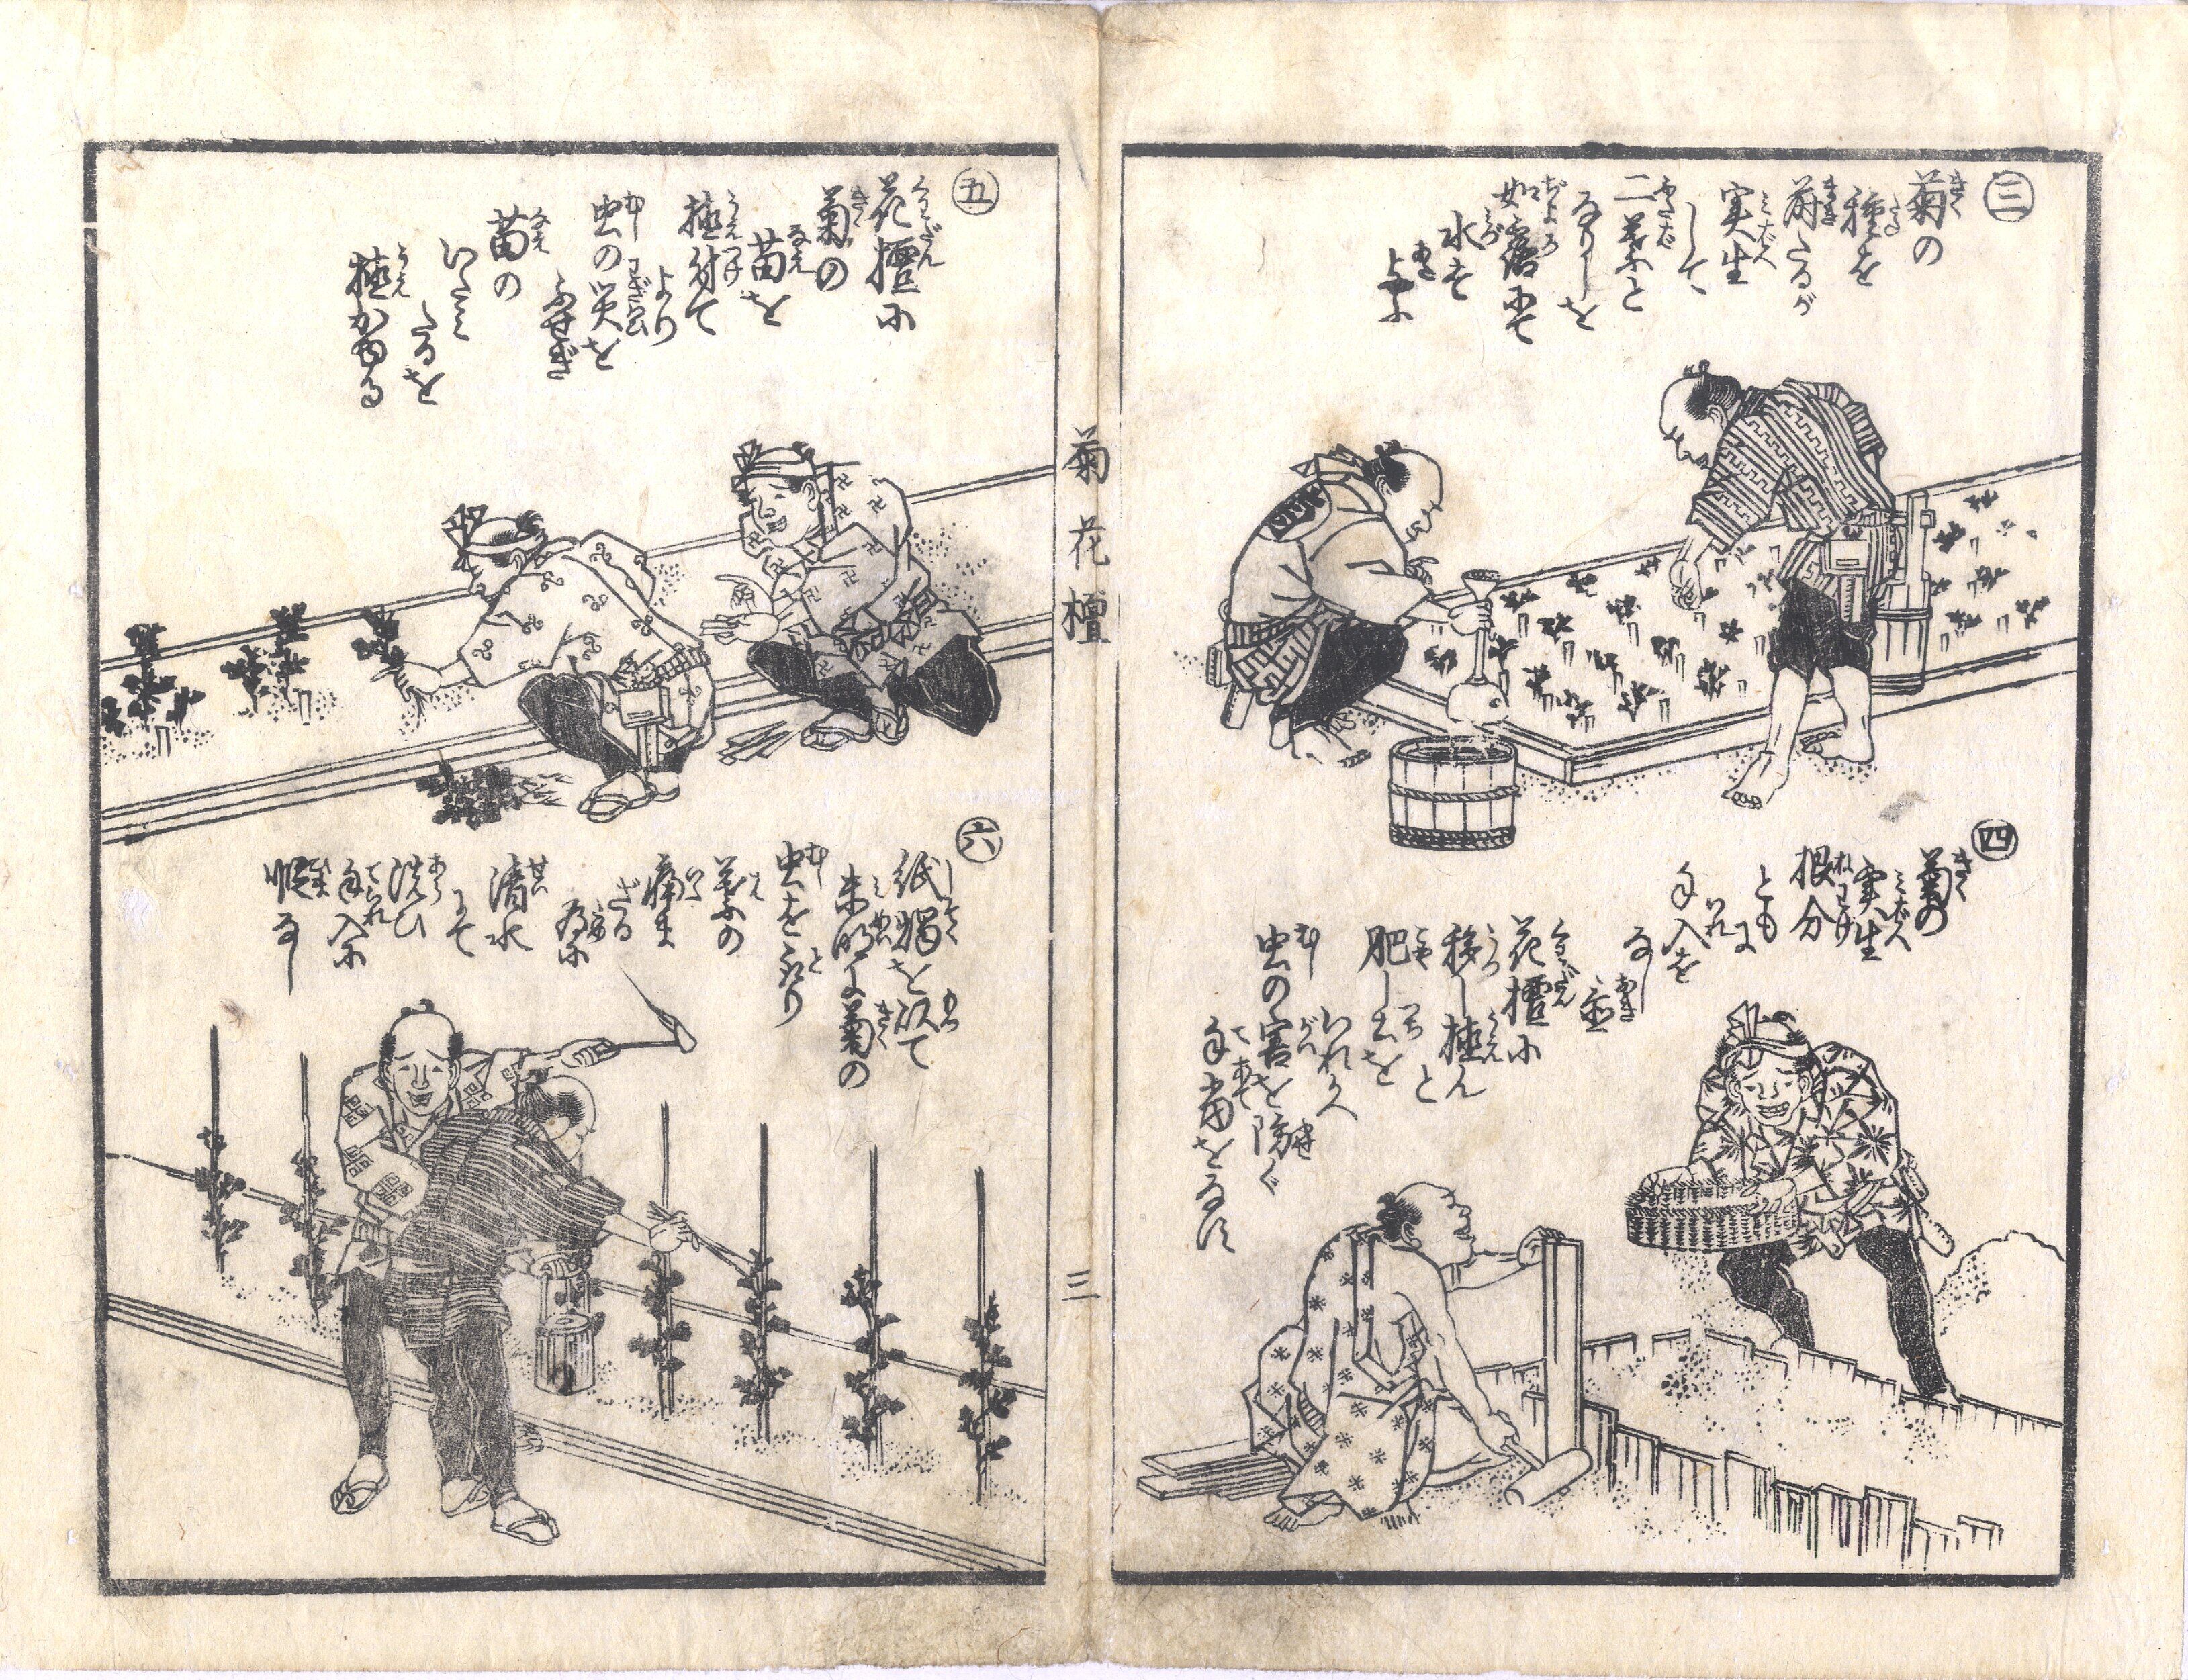 三
菊の
種を
蒔たるが
実生
して、
二葉と
なりしを
如露にて
水を
四
菊の
実生
根分
とも
手入を
なし
花壇に
移し植ん
と
肥し土を
いれかへ
虫の害を防ぐ
手当をなす
五
花壇に
菊の
苗を
植付て
より
虫の災を
ふせぎ
苗の
いたみ
たるを
植かゆる
六
紙燭を以て
未明に菊の
虫を取り
葉の
痛ま
ざる
為に
清水
にて
洗ひ
手入に
暇なし
菊花壇
三